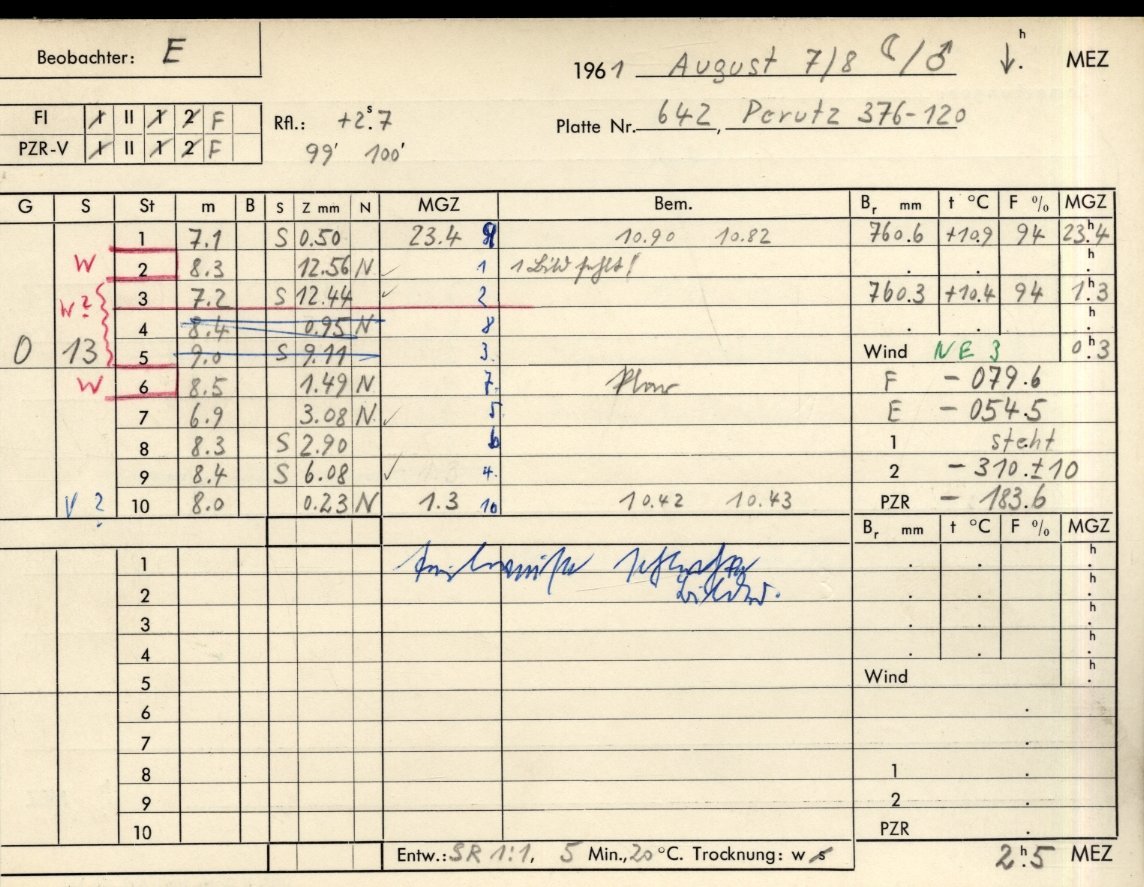 Beobachter: E
1961 August 7/8 ☾/♂ h MEZ
FI I II 1 2 F
PZR-V I II 1 2 F
Rfl.: +2ˢ.7
99' 100'
Platte Nr. 642, Perutz 376-120
G S St m B S Z mm N MGZ Bem. Bᵣ mm t °C F % MGZ
1 7.1 S 0.50 23.4 9 10.90 10.82 760.6 +10.9 94 23ʰ.4
W 2 8.3 12.56 N ✓ 1 1 Bild fehlt! . . h .
W? 3 7.2 S 12.44 ✓ 2 760.3 +10.4 94 1ʰ.3
4 8.4 0.95 N 8 . . h .
0 13 5 9.0 S 9.11 3. Wind NE 3 0ʰ.3
W 6 8.5 1.49 N 7. F - 079.6
7 6.9 3.08 N ✓ 5 E - 054.5
8 8.3 S 2.90 6 1 steht
9 8.4 S 6.08 ✓ 4. 2 - 310.±10
V? 10 8.0 0.23 N 1.3 10 10.42 10.43 PZR - 183.6
Bᵣ mm t °C F % MGZ
1 . . h .
2 Bilder. . . h .
3 . . h .
4 . . h .
5 Wind h .
6 .
7 .
8 1 .
9 2 .
10 PZR .
Entw.: SR 1:1, 5 Min., 20 °C. Trocknung: w s 2ʰ.5 MEZ